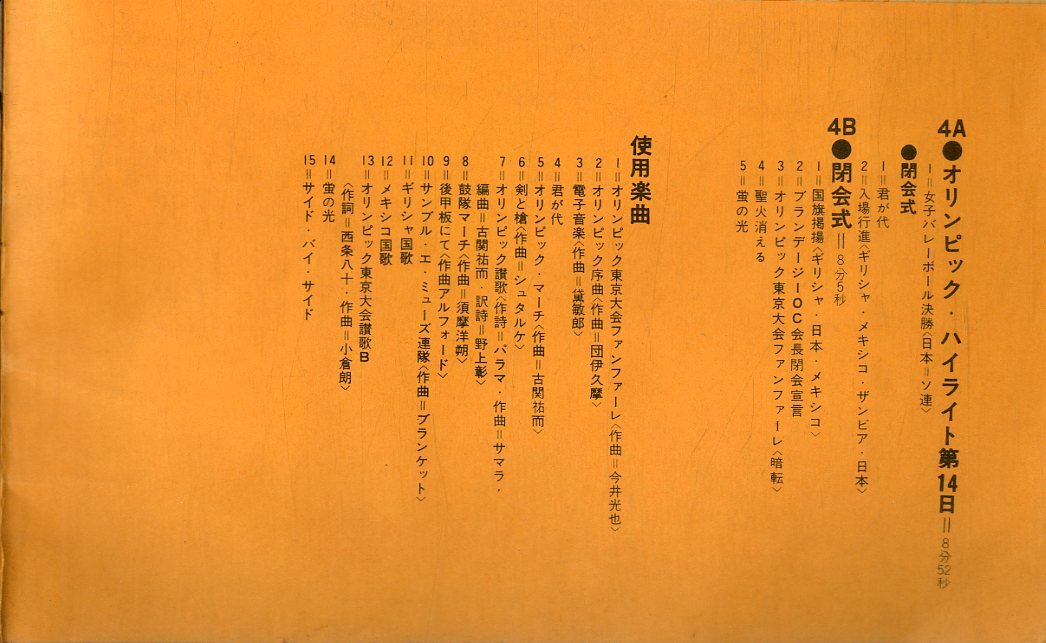 4A●オリンピック・ハイライト第14日＝8分52秒
1＝女子バレーボール決勝〈日本＝ソ連〉
●閉会式
1＝君が代
2＝入場行進〈ギリシャ・メキシコ・ザンビア・日本〉
4B●閉会式＝8分5秒
1＝国旗掲揚〈ギリシャ・日本・メキシコ〉
2＝ブランデージIOC会長閉会宣言
3＝オリンピック東京大会ファンファーレ〈暗転〉
4＝聖火消える
5＝蛍の光
使用楽曲
1＝オリンピック東京大会ファンファーレ〈作曲＝今井光也〉
2＝オリンピック序曲〈作曲＝団伊久摩〉
3＝電子音楽〈作曲＝黛敏郎〉
4＝君が代
5＝オリンピック・マーチ〈作曲＝古関祐而〉
6＝剣と槍〈作曲＝シュタルケ〉
7＝オリンピック讃歌〈作詩＝パラマ・作曲＝サマラ・
編曲＝古関祐而・訳詩＝野上彰〉
8＝鼓隊マーチ〈作曲＝須摩洋朔〉
9＝後甲板にて〈作曲アルフォード〉
10＝サンブル・エ・ミューズ連隊〈作曲＝プランケット〉
11＝ギリシャ国歌
12＝メキシコ国歌
13＝オリンピック東京大会讃歌B
〈作詞＝西条八十・作曲＝小倉朗〉
14＝蛍の光
15＝サイド・バイ・サイド